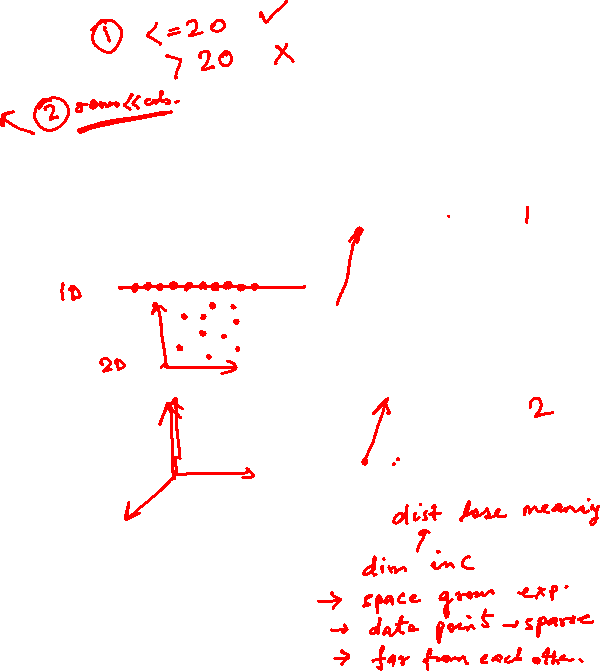 ① <=20 ✓
> 20 ✗
② rows << cols.
1
1D
2D
2
dist lose meaning
dim inc
→ space grows exp.
→ data point → sparse
→ far from each other.